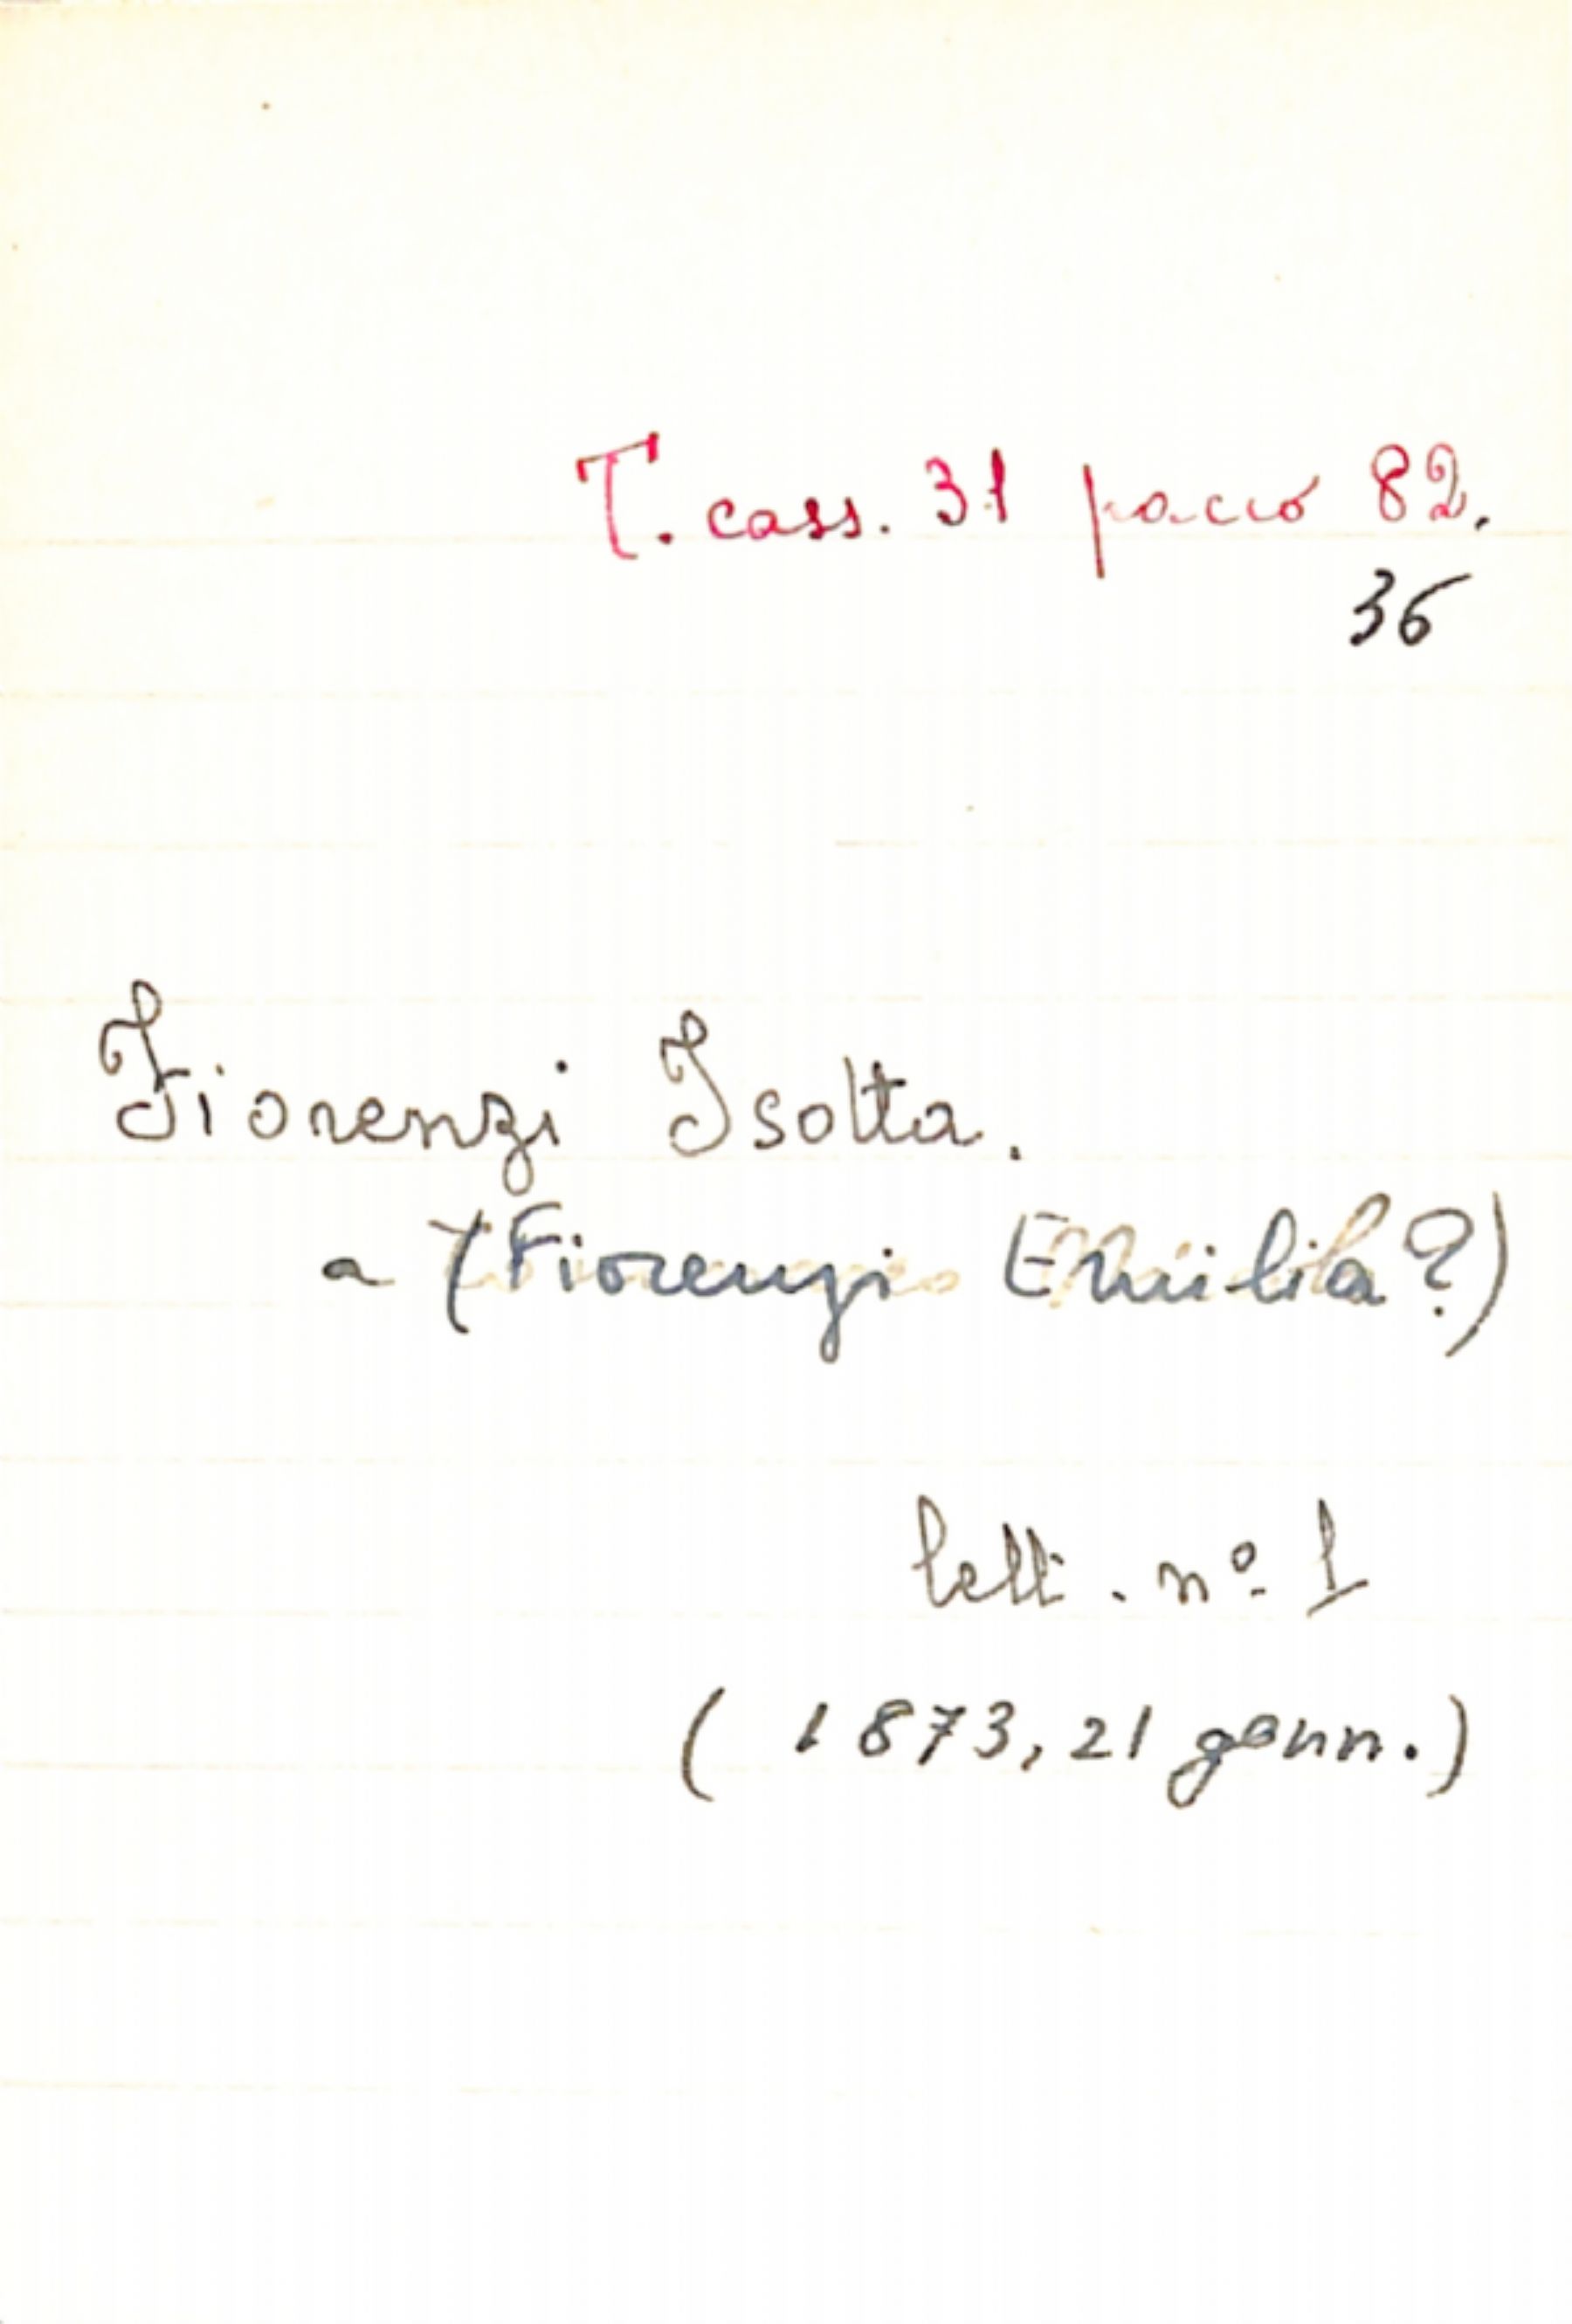 T. cass. 31 pacco 82.
36
Fiorenzi Isotta.
a (Fiorenzi Emilia?)
lett. nº 1
( 1873, 21 genn.)